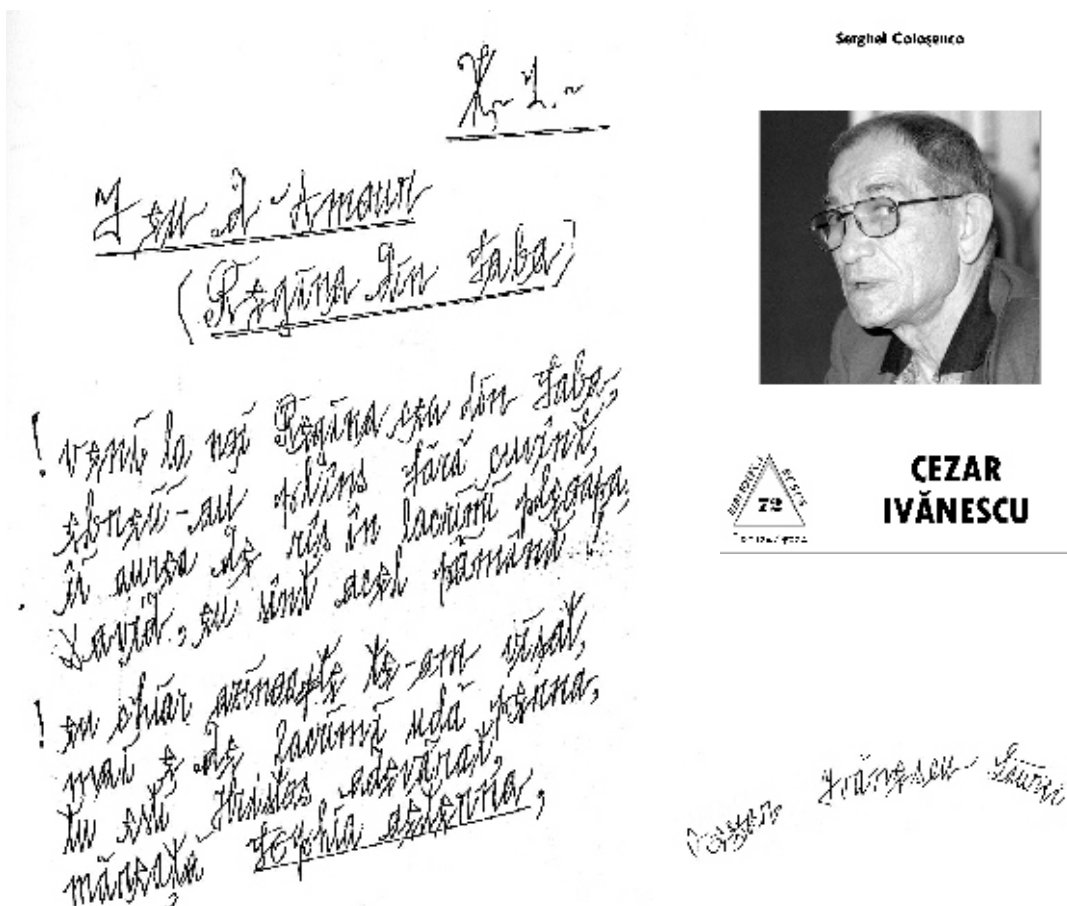 Jeu d'Amour
(Regina din Saba)
! veni la noi Regina cea din Saba,
ebreii-au plîns fără cuvînt,
îi aurea de rîs în lacrimi pleoapa,
David, eu sînt acel pămînt!
! eu chiar azinoapte te-am visat,
mai e de lacrimi udă penna,
tu esti Hristos adevărat,
Sophia aeterna,
Serghei Coloșenco
72
CEZAR
IVĂNESCU
Cezar Ivănescu